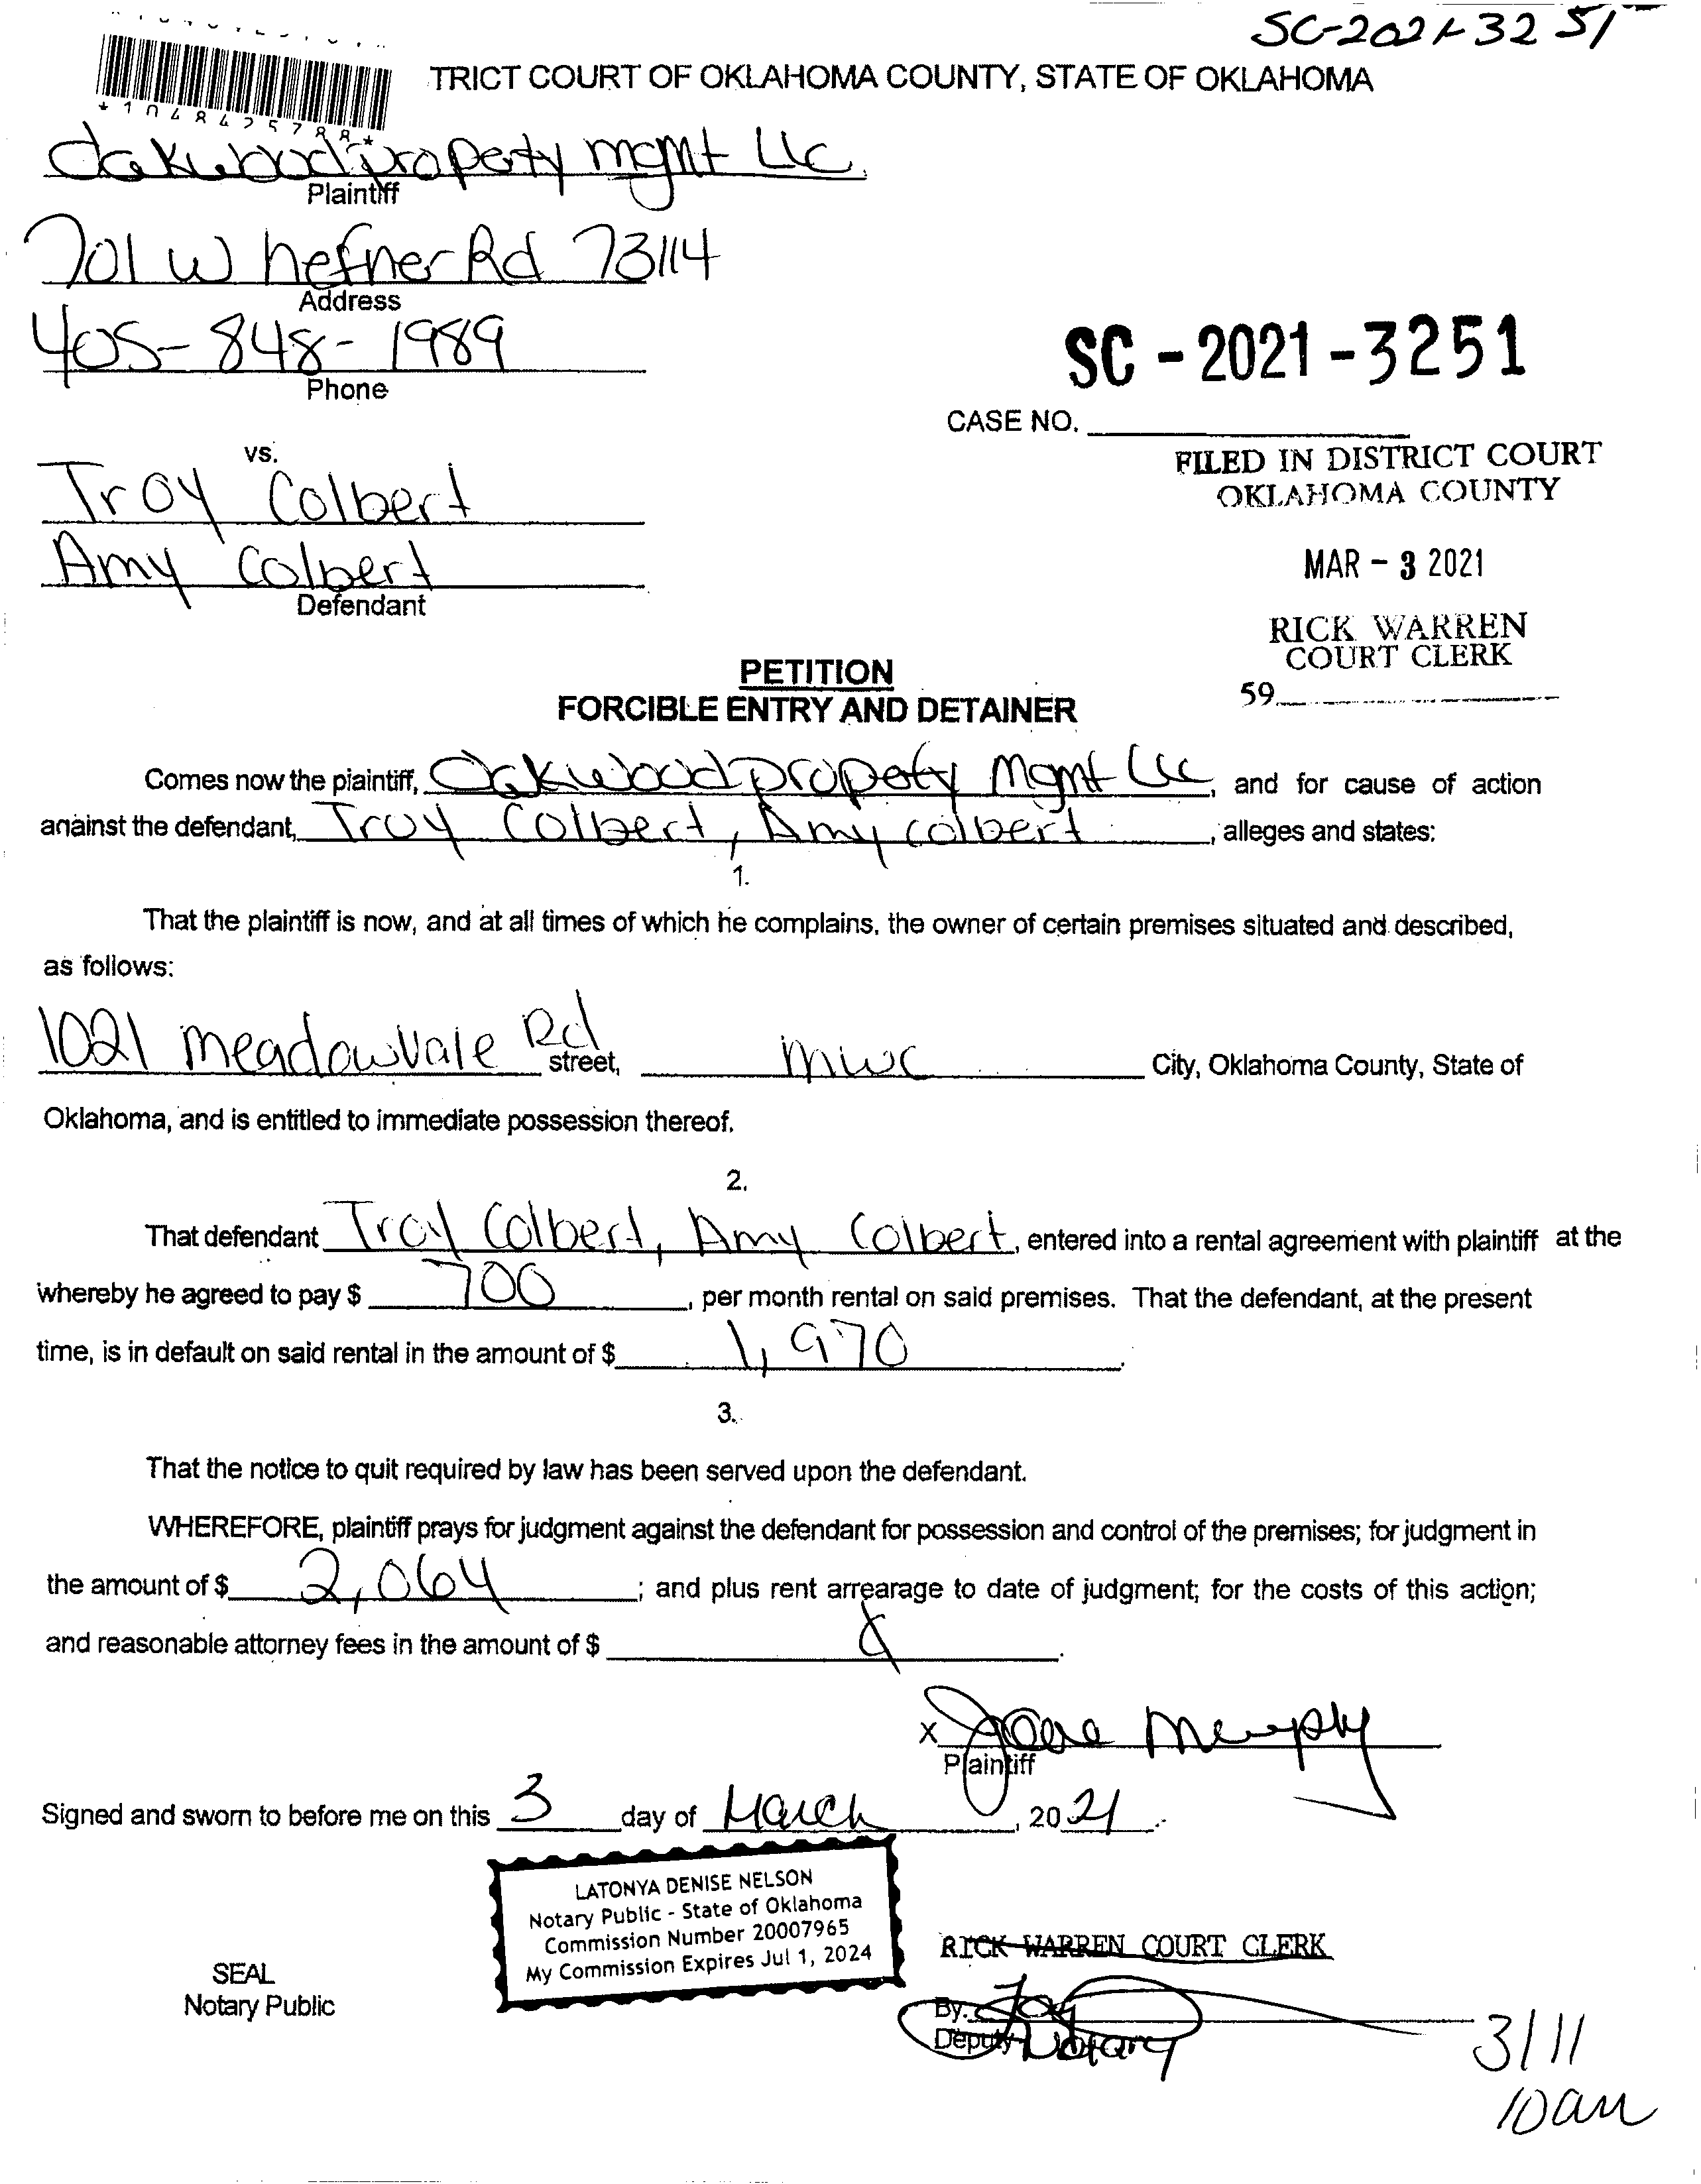 SC-2021-3251
TRICT COURT OF OKLAHOMA COUNTY, STATE OF OKLAHOMA
*1048425788*
Oakwood property mgmt LLC
Plaintiff
701 W hefner Rd 73114
Address
405-848-1989
Phone
SC - 2021 - 3251
CASE NO.
vs.
FILED IN DISTRICT COURT
OKLAHOMA COUNTY
Troy Colbert
Amy Colbert
Defendant
MAR - 3 2021
RICK WARREN
COURT CLERK
59
PETITION
FORCIBLE ENTRY AND DETAINER
Comes now the plaintiff, Oakwood property Mgmt LLC, and for cause of action
against the defendant, Troy Colbert, Amy colbert, alleges and states:
1.
That the plaintiff is now, and at all times of which he complains, the owner of certain premises situated and described,
as follows:
1021 meadowvale Rd street, mwc City, Oklahoma County, State of
Oklahoma, and is entitled to immediate possession thereof.
2.
That defendant Troy Colbert, Amy Colbert, entered into a rental agreement with plaintiff at the
whereby he agreed to pay $ 700, per month rental on said premises. That the defendant, at the present
time, is in default on said rental in the amount of $ 1,970.
3.
That the notice to quit required by law has been served upon the defendant.
WHEREFORE, plaintiff prays for judgment against the defendant for possession and control of the premises; for judgment in
the amount of $ 2,064; and plus rent arrearage to date of judgment; for the costs of this action;
and reasonable attorney fees in the amount of $
X
Plaintiff
Signed and sworn to before me on this 3 day of March, 2021.
LATONYA DENISE NELSON
Notary Public - State of Oklahoma
Commission Number 20007965
My Commission Expires Jul 1, 2024
SEAL
Notary Public
RICK WARREN COURT CLERK
By.
Deputy Notary
3/11
10am